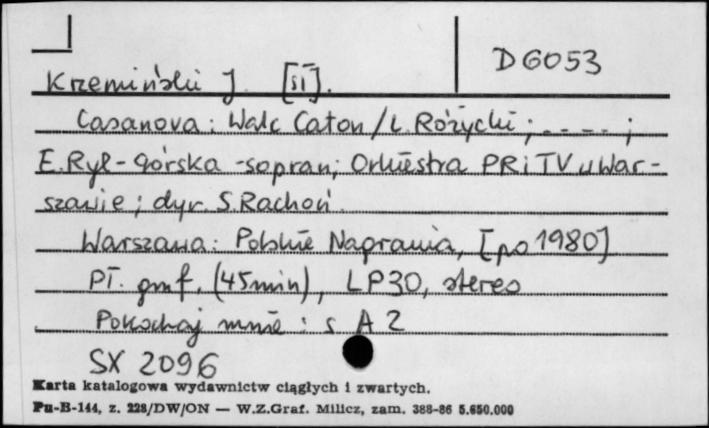 D6053
Krzemiński J. [sł].
Casanova: Walc Caton / L. Różycki; - - - - ;
E. Rył-Górska - sopran; Orkiestra PR i TV w War-
szawie; dyr. S. Rachoń.
Warszawa: Polskie Nagrania, [po 1980]
Pł. gmf. (45 min), LP30, stereo
Pokochaj mnie: s A 2
SX 2096
Karta katalogowa wydawnictw ciągłych i zwartych.
Pu-B-144, z. 228/DW/ON — W.Z.Graf. Milicz, zam. 388-86 5.650.000